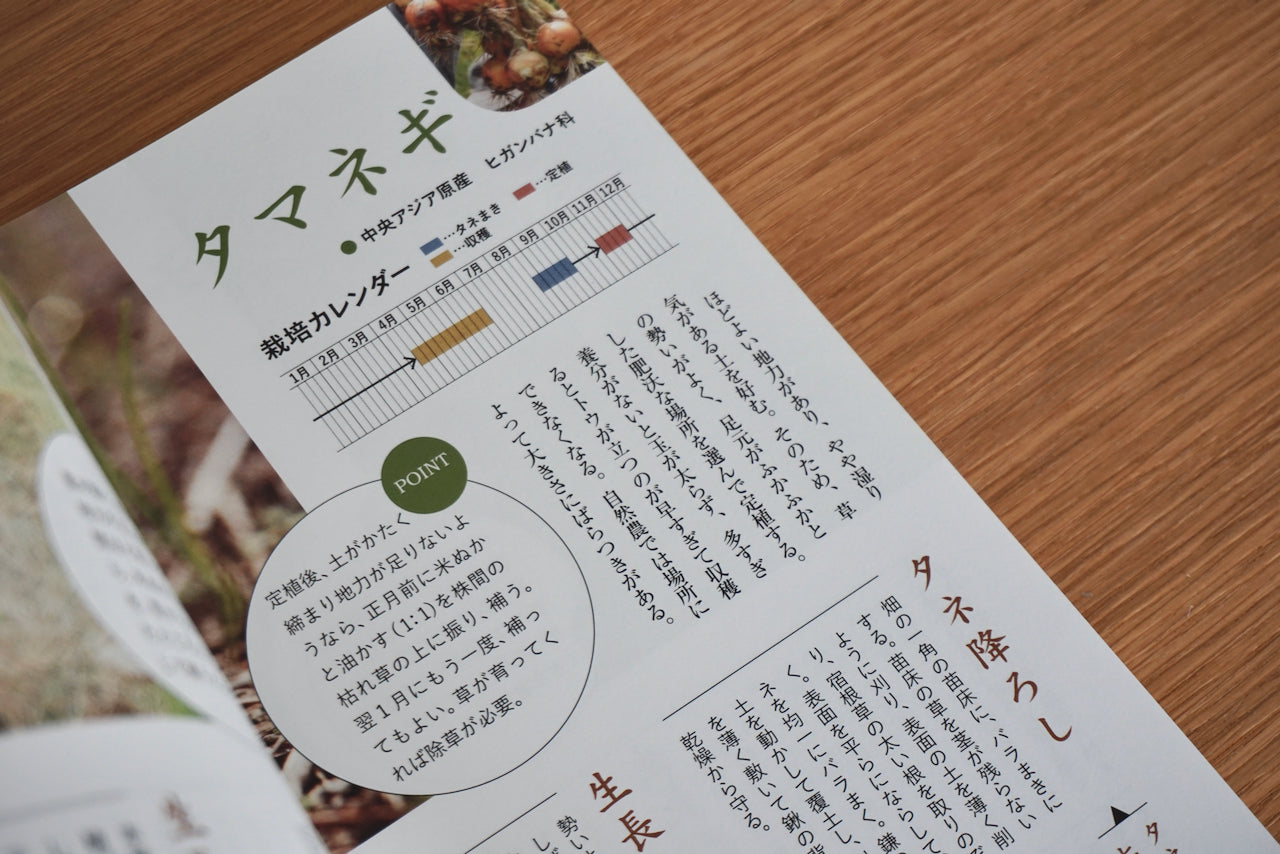 タマネギ
●中央アジア原産 ヒガンバナ科
栽培カレンダー
…タネまき
…定植
…収穫
1月 2月 3月 4月 5月 6月 7月 8月 9月 10月 11月 12月
ほどよい地力があり、やや湿り
気がある土を好む。そのため、草
の勢いがよく、足元がふかふかと
した肥沃な場所を選んで定植する。
養分がないと玉が太らず、多すぎ
るとトウが立つのが早すぎて収穫
できなくなる。自然農では場所に
よって大きさにばらつきがある。
POINT
定植後、土がかたく
締まり地力が足りないよ
うなら、正月前に米ぬか
と油かす（1：1）を株間の
枯れ草の上に振り、補う。
翌1月にもう一度、補っ
てもよい。草が育ってく
れば除草が必要。
タネ降ろし
畑の一角の苗床に、バラまきに
する。苗床の草を茎が残らない
ように刈り、表面の土を薄く削
り、宿根草の太い根を取りのぞ
く。表面を平らにならして
ネを均一にバラまく。鎌
土を動かして覆土し、
を薄く敷いて鍬の背
乾燥から守る。
生長
勢い
し
タ
生